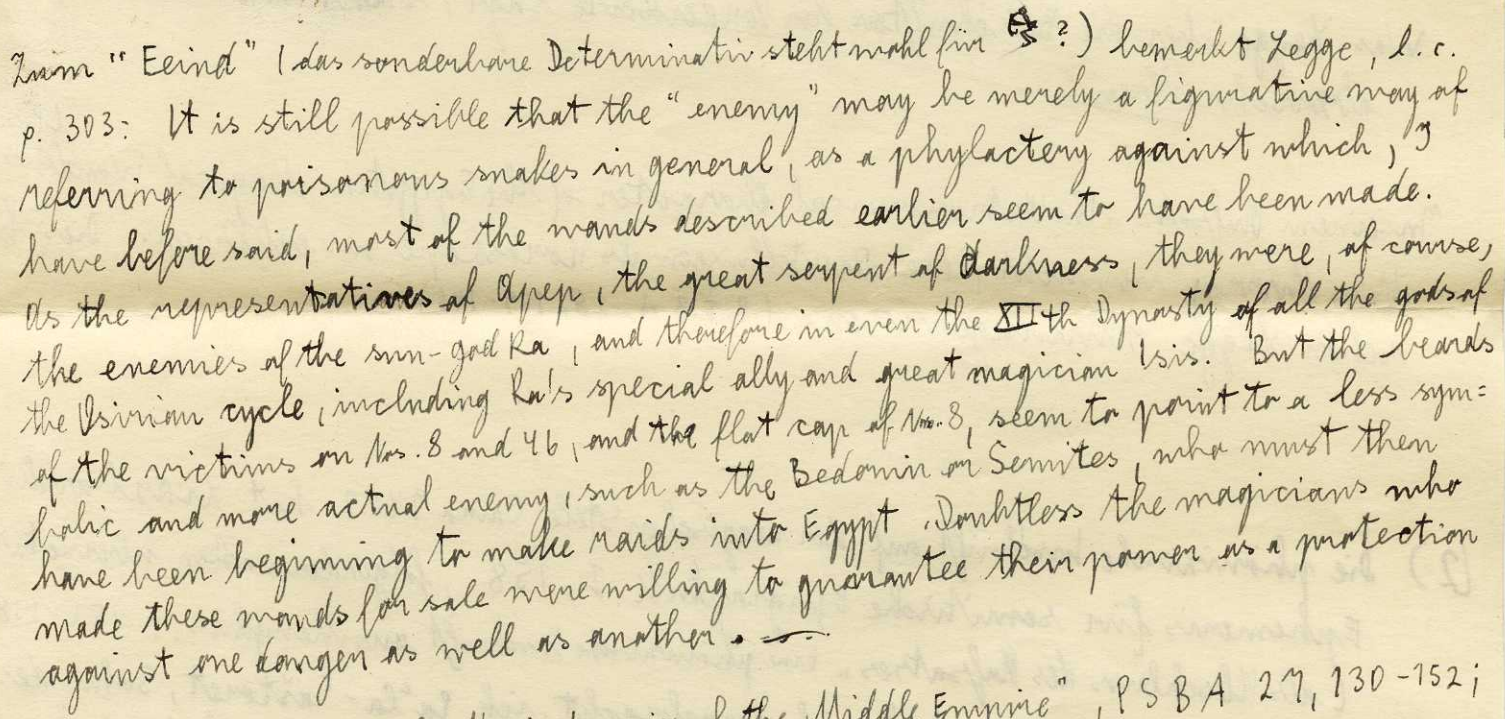 Zum "Feind" (das sonderbare Determinativ steht wohl für ?) bemerkt Legge, l. c.
p. 303: It is still possible that the "enemy" may be merely a figurative way of
referring to poisonous snakes in general, as a phylactery against which, I
have before said, most of the wands described earlier seem to have been made.
As the representatives of Apep, the great serpent of darkness, they were, of course,
the enemies of the sun-god Ra, and therefore in even the XIIth Dynasty of all the gods of
the Osirian cycle, including Ra's special ally and great magician Isis. But the beards
of the victims on Nos. 8 and 46, and the flat cap of No. 8, seem to point to a less sym=
bolic and more actual enemy, such as the Bedouin or Semites, who must then
have been beginning to make raids into Egypt. Doubtless the magicians who
made these wands for sale were willing to guarantee their power as a protection
against one danger as well as another. —
of the Middle Empire", PSBA 27, 130-152;